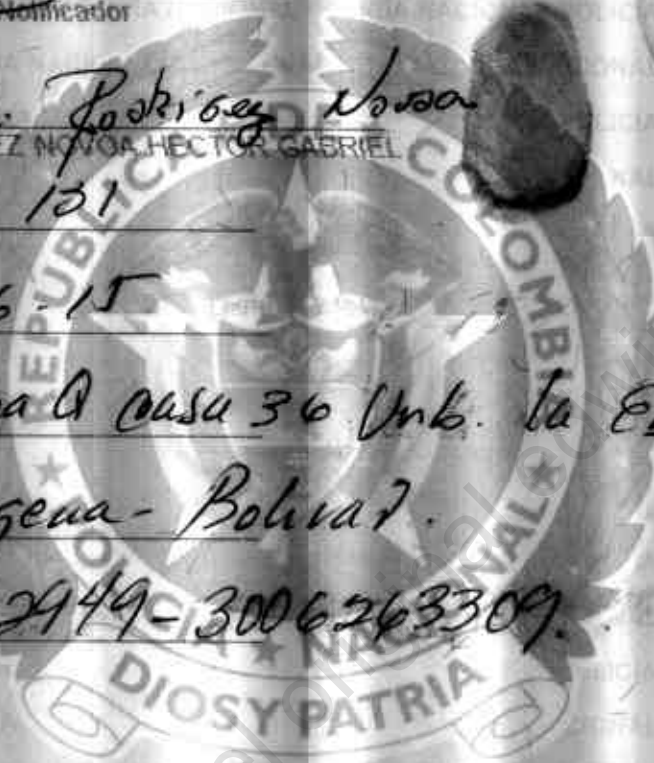 Notificador
Rodriguez Novoa
EZ NOVOA HECTOR GABRIEL
131
6.15
a Q casa 36 Urb. la
gena - Bolivar.
2949-3006263309.
REPUBLICA DE COLOMBIA
POLICIA NACIONAL
DIOS Y PATRIA